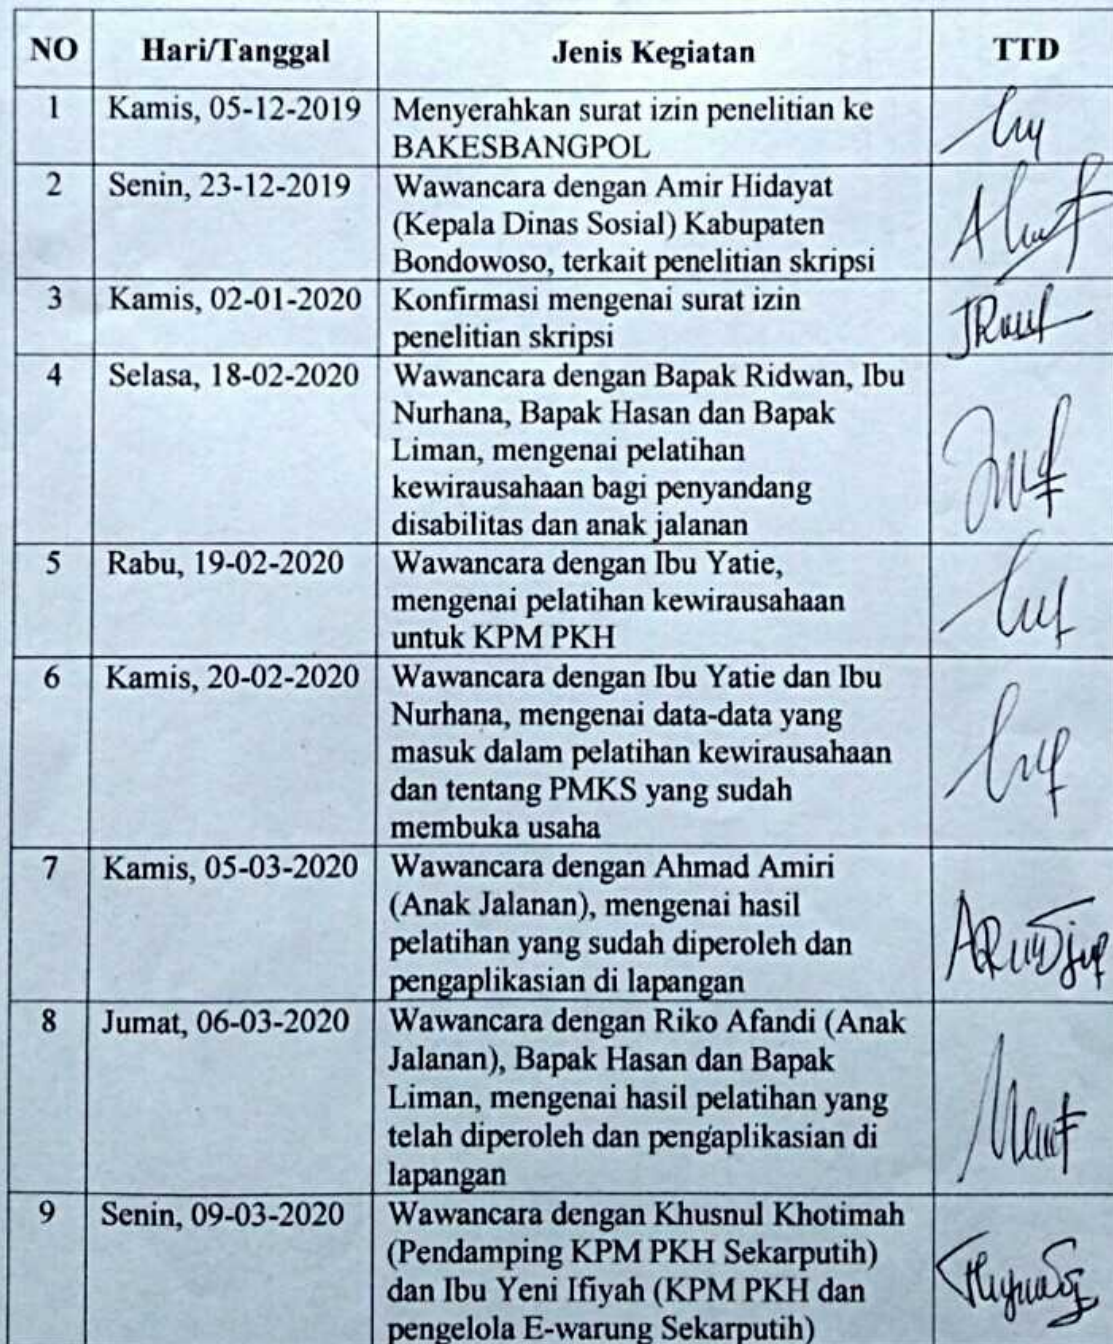 NO Hari/Tanggal Jenis Kegiatan TTD
1 Kamis, 05-12-2019 Menyerahkan surat izin penelitian ke
BAKESBANGPOL
2 Senin, 23-12-2019 Wawancara dengan Amir Hidayat
(Kepala Dinas Sosial) Kabupaten
Bondowoso, terkait penelitian skripsi
3 Kamis, 02-01-2020 Konfirmasi mengenai surat izin
penelitian skripsi
4 Selasa, 18-02-2020 Wawancara dengan Bapak Ridwan, Ibu
Nurhana, Bapak Hasan dan Bapak
Liman, mengenai pelatihan
kewirausahaan bagi penyandang
disabilitas dan anak jalanan
5 Rabu, 19-02-2020 Wawancara dengan Ibu Yatie,
mengenai pelatihan kewirausahaan
untuk KPM PKH
6 Kamis, 20-02-2020 Wawancara dengan Ibu Yatie dan Ibu
Nurhana, mengenai data-data yang
masuk dalam pelatihan kewirausahaan
dan tentang PMKS yang sudah
membuka usaha
7 Kamis, 05-03-2020 Wawancara dengan Ahmad Amiri
(Anak Jalanan), mengenai hasil
pelatihan yang sudah diperoleh dan
pengaplikasian di lapangan
8 Jumat, 06-03-2020 Wawancara dengan Riko Afandi (Anak
Jalanan), Bapak Hasan dan Bapak
Liman, mengenai hasil pelatihan yang
telah diperoleh dan pengaplikasian di
lapangan
9 Senin, 09-03-2020 Wawancara dengan Khusnul Khotimah
(Pendamping KPM PKH Sekarputih)
dan Ibu Yeni Ifiyah (KPM PKH dan
pengelola E-warung Sekarputih)